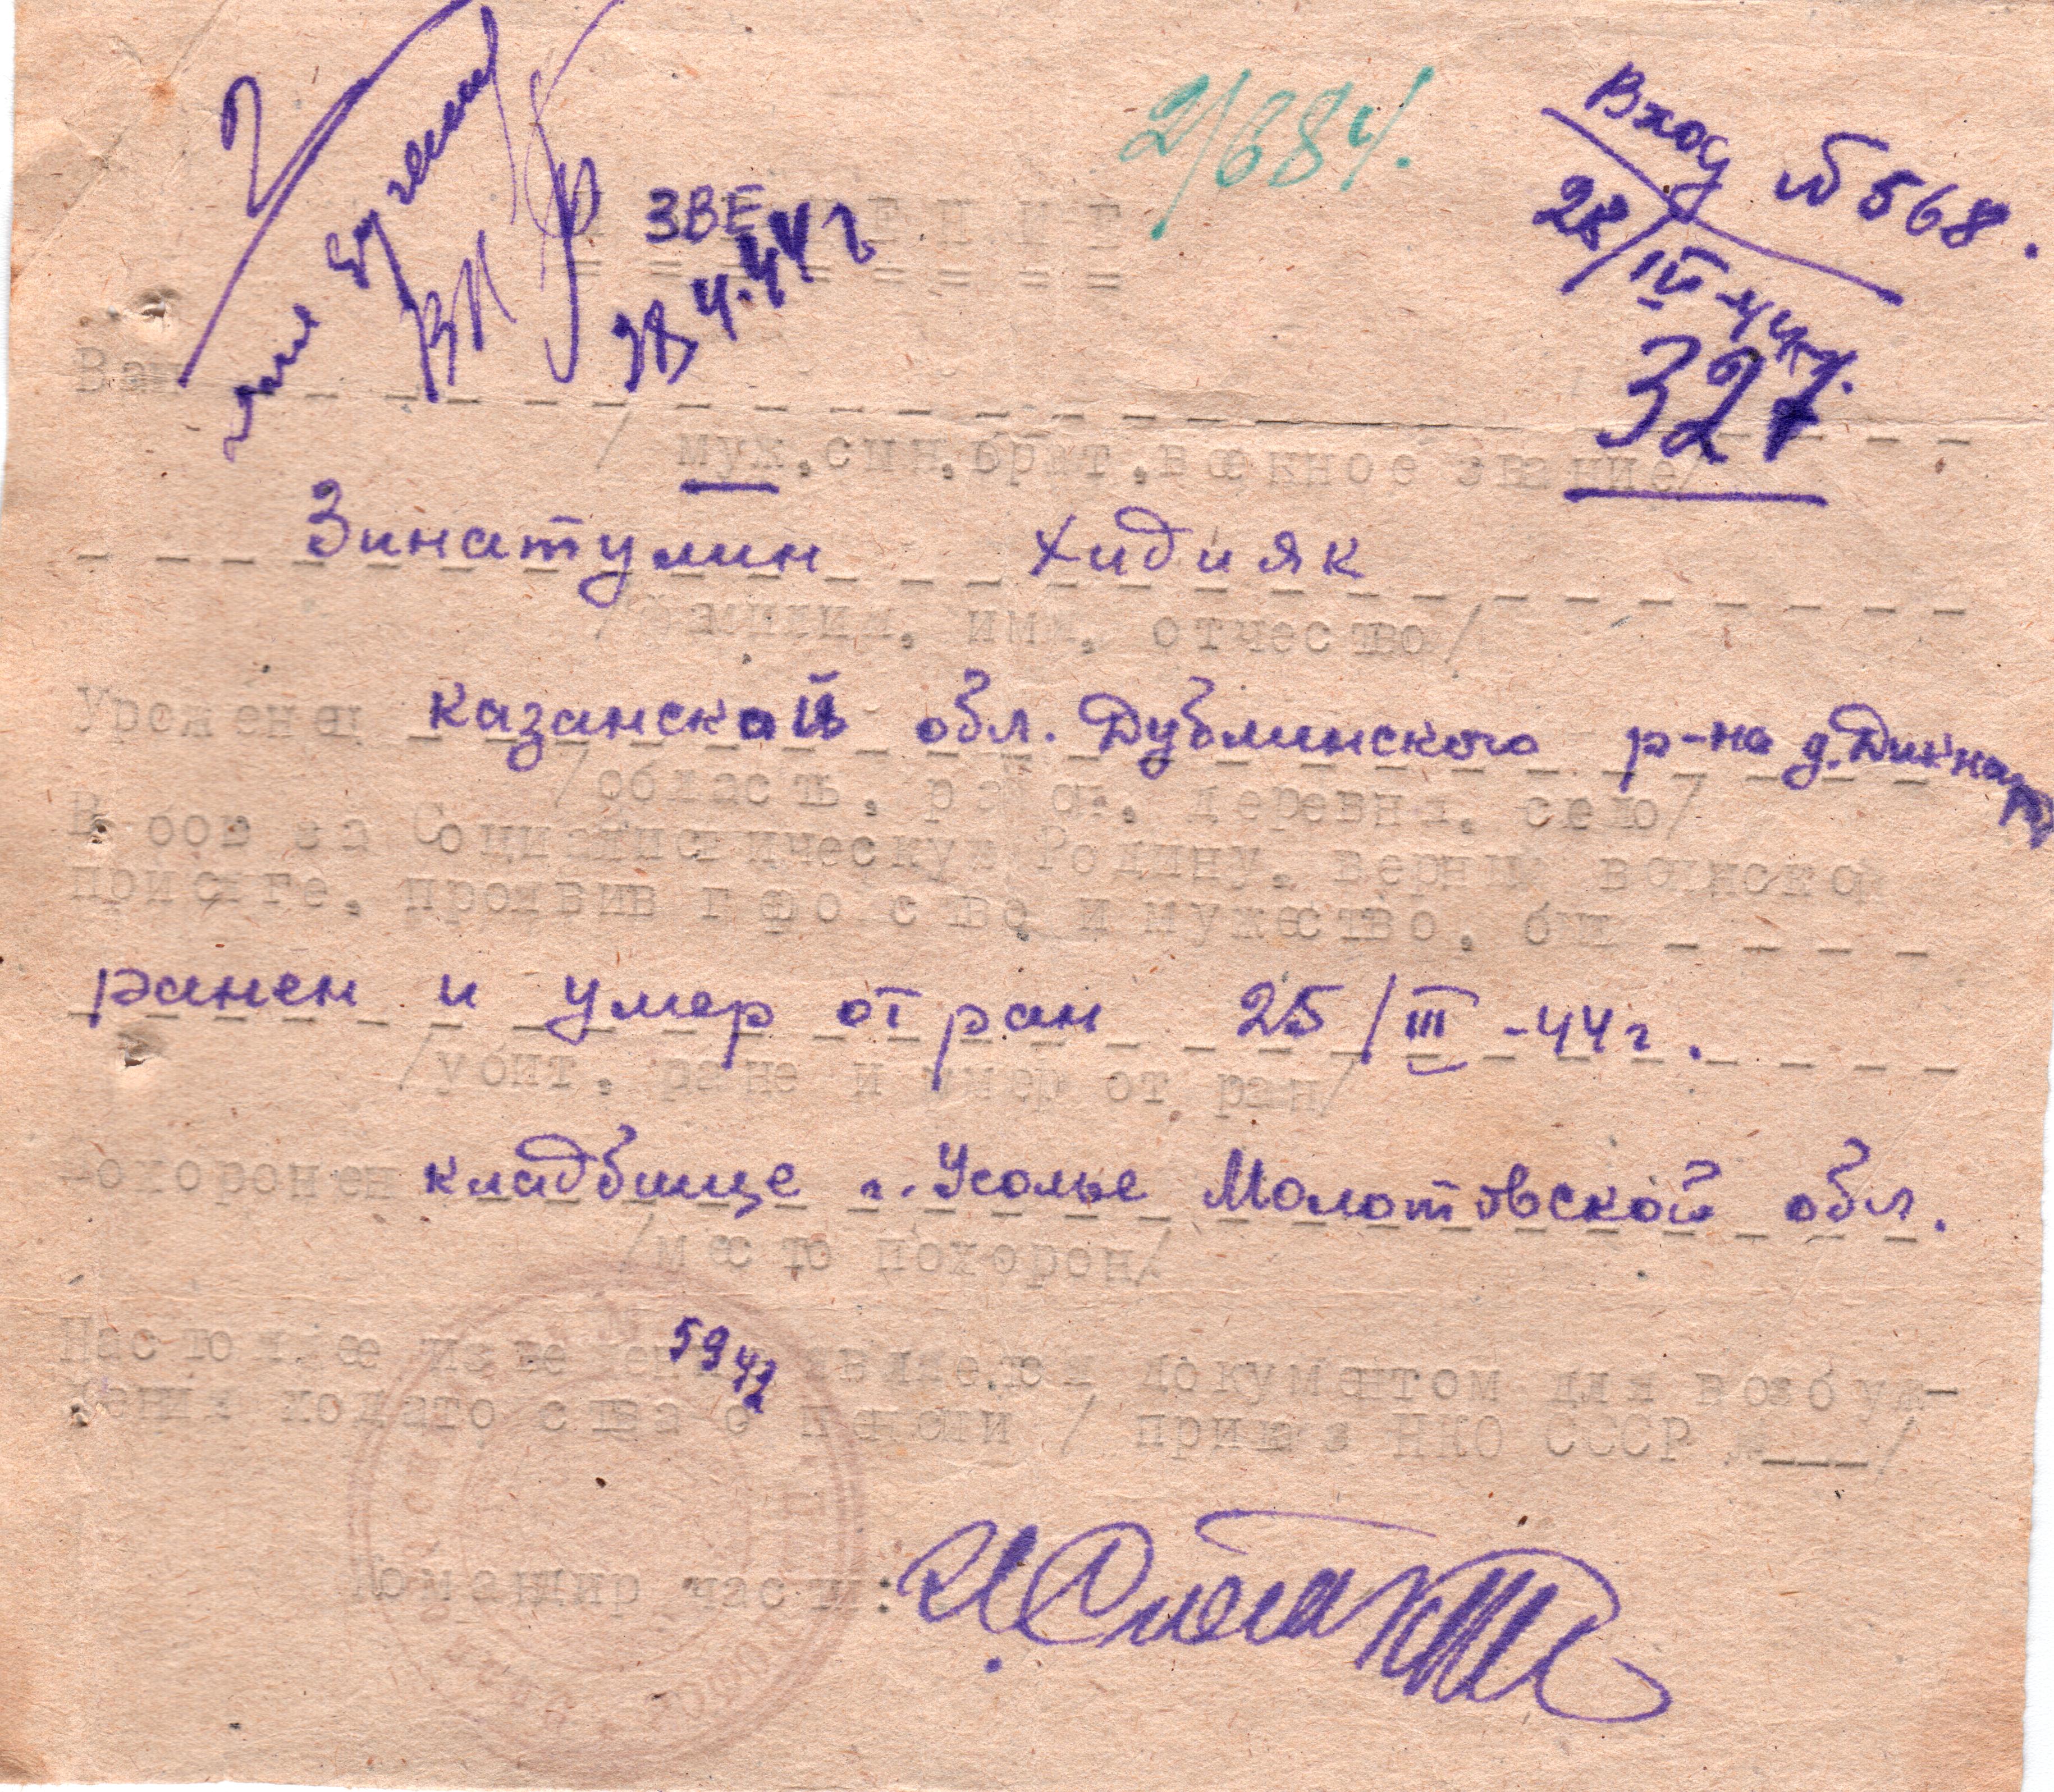 2/684.
Вход № 568.
28/IV-44г.
327
ИЗВЕЩЕНИЕ
28 4.44 г
Ваш
/ муж, сын, брат, военное звание/
Зинатулин Хидияк
/фамилия, имя, отчество/
Уроженец Казанской обл. Дублинского р-на д.
/область, район, деревня, село/
В бою за Социалистическую Родину, верный воинской
присяге, проявив геройство и мужество, был
ранен и умер от ран 25/III-44г.
/убит, ранен и умер от ран/
Похоронен кладбище г. Усолье Молотовской обл.
/место похорон/
5942
Настоящее извещение является документом для возбуж-
дения ходатайства о пенсии / приказ НКО СССР № ___/
Командир части: